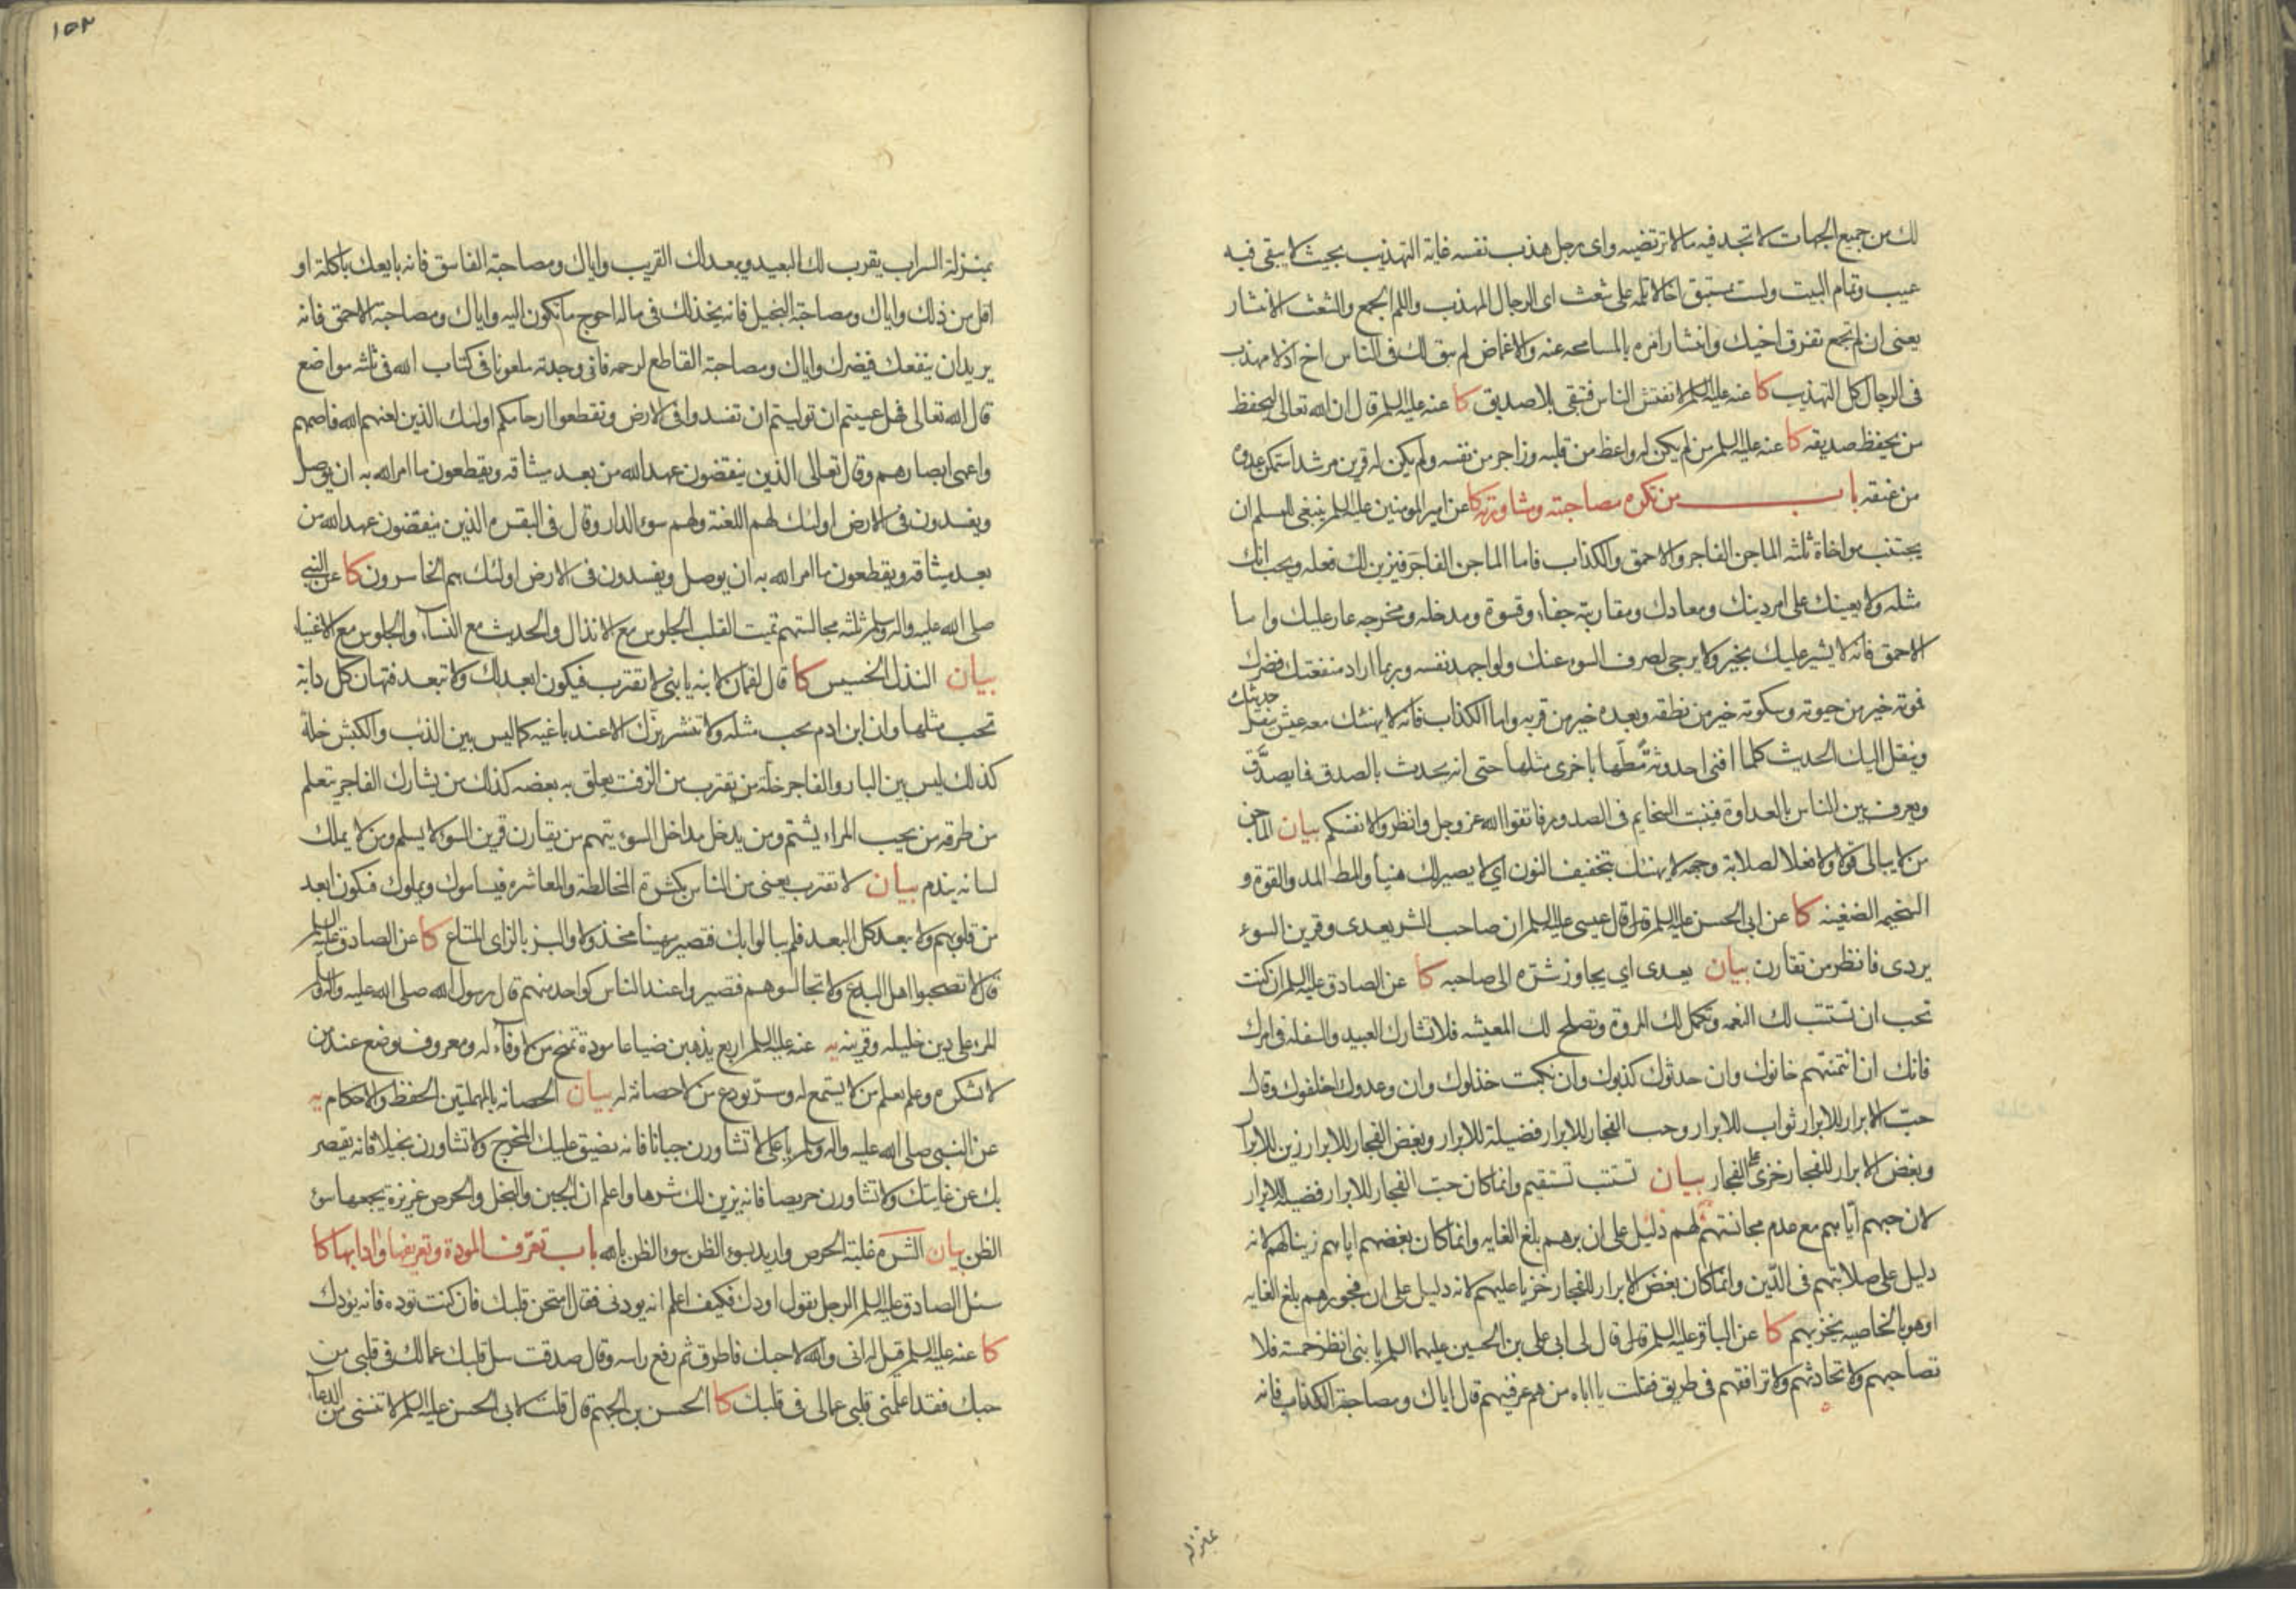 لك من جميع الجهات لا تجد فيه ما لا ترتضيه واى رجل هذب نفسه غاية التهذيب بحيث لا يبقى فيه
عيب وتمام البيت ولست بمستبق اخا لا تلمه على شعث اى الرجال المهذب واللم الجمع والشعث الانتشار
يعنى ان لم تجمع تفرق اخيك وانتشار امره بالمسامحه عنه والاغماض لم يبق لك فى الناس اخ اذ لا مهذب
فى الرجال كل التهذيب كا عنه عليه السلم لا تفتش الناس فتبقى بلا صديق كا عنه عليه السلم قال ان الله تعالى ليحفظ
من يحفظ صديقه كا عنه عليه السلم من لم يكن له واعظ من قلبه وزاجر من نفسه ولم يكن له قرين مرشد استمكن عدوه
من عنقه باب من تكره مصاحبته ومشاورته كا عن امير المومنين عليه السلم ينبغى للمسلم ان
يجتنب مواخاة ثلثه الماجن الفاجر والاحمق والكذاب فاما الماجن الفاجر فيزين لك فعله ويحب انك
مثله ولا يعينك على امر دينك ومعادك ومقاربته جفاء وقسوة ومدخله ومخرجه عار عليك واما
الاحمق فانه لا يشير عليك بخير ولا يرجى لصرف السوء عنك ولو اجهد نفسه وربما اراد منفعتك فضرك
فموته خير من حيوته وسكوته خير من نطقه وبعده خير من قربه واما الكذاب فانه لا يهنئك معه عيش ينقل حديثك
وينقل اليك الحديث كلما افنى احدوثة مطّها باخرى مثلها حتى انه يحدث بالصدق فما يصدّق
ويعرف بين الناس بالعداوة فينبت السخايم فى الصدور فاتقوا الله عز وجل وانظروا لانفسكم بيان الماجن
من لا يبالى قولا ولا فعلا لصلابة وجهه لا يهنئك بتخفيف النون اي لا يصير لك هنيأ والمط المد والقوة و
السخيمه الضغينه كا عن ابى الحسن عليه السلم قال قال عيسى عليه السلم ان صاحب الشر يعدى وقرين السوء
يردى فانظر من تقارن بيان يعدى اي يجاوز شرّه الى صاحبه كا عن الصادق عليه السلم ان كنت
تحب ان تستتب لك النعمه وتكمل لك المروة وتصلح لك المعيشه فلا تشارك العبيد والسفله فى امرك
فانك ان ائتمنتهم خانوك وان حدثوك كذبوك وان نكبت خذلوك وان وعدوك اخلفوك وقال
حبّ الابرار للابرار ثواب للابرار وحب الفجار للابرار فضيلة للابرار وبغض الفجار للابرار زين للابرار
وبغض الابرار للفجار خزى على الفجار بيان تستتب تستقيم وانما كان حبّ الفجار للابرار فضيلة للابرار
لان حبهم اياهم مع عدم مجانستهم لهم دليل على ان برهم بلغ الغايه وانما كان بغضهم اياهم زينا لهم لانه
دليل على صلابتهم فى الدّين وانما كان بغض الابرار للفجار خزيا عليهم لانه دليل على ان فجورهم بلغ الغايه
او هو بالخاصيه يخزيهم كا عن الباقر عليه السلم قال قال لى ابى على بن الحسين عليهما السلم يا بنى انظر خمسة فلا
تصاحبهم ولا تحادثهم ولا ترافقهم فى طريق فقلت يا اباه من هم عرفنيهم قال اياك ومصاحبة الكذاب فانه
بمنزله
١٥٢
بمنزلة السراب يقرب لك البعيد ويبعد لك القريب واياك ومصاحبة الفاسق فانه بايعك باكلة او
اقل من ذلك واياك ومصاحبة البخيل فانه يخذلك فى ماله احوج ما تكون اليه واياك ومصاحبة الاحمق فانه
يريد ان ينفعك فيضرك واياك ومصاحبة القاطع لرحمه فانى وجدته ملعونا فى كتاب الله فى ثلثه مواضع
قال الله تعالى فهل عسيتم ان توليتم ان تفسدوا فى الارض وتقطعوا ارحامكم اولئك الذين لعنهم الله فاصمهم
واعمى ابصارهم وقال تعالى الذين ينقضون عهد الله من بعد ميثاقه ويقطعون ما امر الله به ان يوصل
ويفسدون فى الارض اولئك لهم اللعنة ولهم سوء الدار وقال فى البقره الذين ينقضون عهد الله من
بعد ميثاقه ويقطعون ما امر الله به ان يوصل ويفسدون فى الارض اولئك هم الخاسرون كا عن النبي
صلى الله عليه واله وسلم ثلثه مجالستهم تميت القلب الجلوس مع الانذال والحديث مع النسآء والجلوس مع الاغنياء
بيان النذل الخسيس كا قال لقمان لابنه يا بنى لا تقترب فيكون ابعد لك ولا تبعد فتهان كل دابة
تحب مثلها وان ابن ادم يحب مثله ولا تنشر بزّك الا عند باغيه كما ليس بين الذئب والكبش خلة
كذلك ليس بين البار والفاجر خلة من يقترب من الزفت يعلق به بعضه كذلك من يشارك الفاجر يتعلم
من طرقه من يحب المراء يشتم ومن يدخل مداخل السوء يتهم من يقارن قرين السوء لا يسلم ومن لا يملك
لسانه يندم بيان لا تقترب يعنى من الناس بكثرة المخالطة والمعاشره فيسأموك ويملوك فتكون ابعد
من قلوبهم ولا تبعد كل البعد فلم يبالوا بك فتصير مهينا مخذولا والبز بالزاى المتاع كا عن الصادق عليه السلم
قال لا تصحبوا اهل البدع ولا تجالسوهم فتصيروا عند الناس كواحد منهم قال رسول الله صلى الله عليه واله وسلم
المرء على دين خليله وقرينه يه عنه عليه السلم اربع يذهبن ضياعا مودة تمنح من لا وفآء له ومعروف يوضع عند من
لا يشكره وعلم يعلم من لا يستمع له وسرّ يودع من لا حصانة له بيان الحصانه بالمهملتين الحفظ والاحكام يه
عن النبى صلى الله عليه واله وسلم يا على لا تشاورن جبانا فانه يضيق عليك المخرج ولا تشاورن بخيلا فانه يقصر
بك عن غايتك ولا تشاورن حريصا فانه يزين لك شرها واعلم ان الجبن والبخل والحرص غريزة يجمعها سوء
الظن بيان الشره غلبة الحرص واريد بسوء الظن سوء الظن بالله باب تعرّف المودة وتعريفها وادابها كا
سئل الصادق عليه السلم الرجل يقول اودك فكيف اعلم انه يودنى فقال امتحن قلبك فان كنت توده فانه يودك
كا عنه عليه السلم قيل له انى والله لاحبك فاطرق ثم رفع راسه وقال صدقت سل قلبك عما لك فى قلبى من
حبك فقد اعلمنى قلبى عما لى فى قلبك كا الحسن بن الجهم قال قلت لابى الحسن عليه السلم لا تنسنى من الدعاء